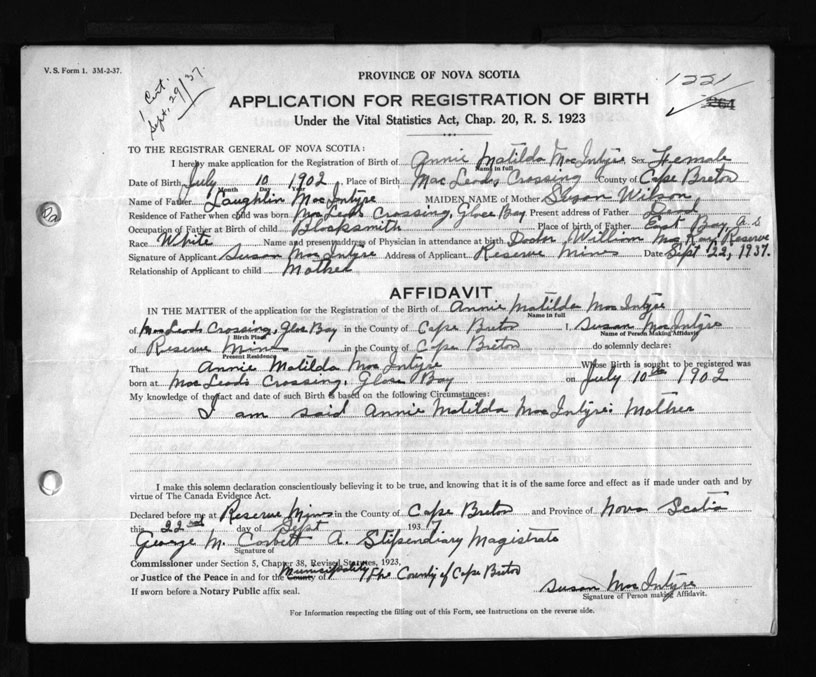 V. S. Form 1. 3M-2-37.
1 Cert.
Sept. 29/37.
PROVINCE OF NOVA SCOTIA
1221
264
APPLICATION FOR REGISTRATION OF BIRTH
Under the Vital Statistics Act, Chap. 20, R. S. 1923
TO THE REGISTRAR GENERAL OF NOVA SCOTIA:
I hereby make application for the Registration of Birth of Annie Matilda MacIntyre Sex Female
Name in full
Date of Birth July 10 1902 Place of Birth MacLeods Crossing County of Cape Breton
Month Day Year
Name of Father Laughlin MacIntyre MAIDEN NAME of Mother Susan Wilson
Residence of Father when child was born MacLeods Crossing, Glace Bay Present address of Father Dead
Occupation of Father at Birth of child Blacksmith Place of birth of Father East Bay, C B
Race White Name and present address of Physician in attendance at birth Doctor William McKay, Reserve
Signature of Applicant Susan MacIntyre Address of Applicant Reserve Mines Date Sept 22, 1937.
Relationship of Applicant to child Mother
AFFIDAVIT
IN THE MATTER of the application for the Registration of the Birth of Annie Matilda MacIntyre
Name in full
of MacLeods Crossing, Glace Bay in the County of Cape Breton I, Susan MacIntyre
Birth Place Name of Person Making Affidavit
of Reserve Mines in the County of Cape Breton do solemnly declare:
Present Residence
That Annie Matilda MacIntyre Whose Birth is sought to be registered was
born at MacLeods Crossing, Glace Bay on July 10th 1902
My knowledge of the fact and date of such Birth is based on the following Circumstances:
I am said Annie Matilda MacIntyre's Mother
I make this solemn declaration conscientiously believing it to be true, and knowing that it is of the same force and effect as if made under oath and by
virtue of The Canada Evidence Act.
Declared before me at Reserve Mines in the County of Cape Breton and Province of Nova Scotia
this 22nd day of Sept 1937.
George M. Corbett A. Stipendiary Magistrate
Signature of
Commissioner under Section 5, Chapter 38, Revised Statutes, 1923,
or Justice of the Peace in and for the County of Municipality of The County of Cape Breton
If sworn before a Notary Public affix seal.
Susan MacIntyre
Signature of Person making Affidavit.
For Information respecting the filling out of this Form, see Instructions on the reverse side.